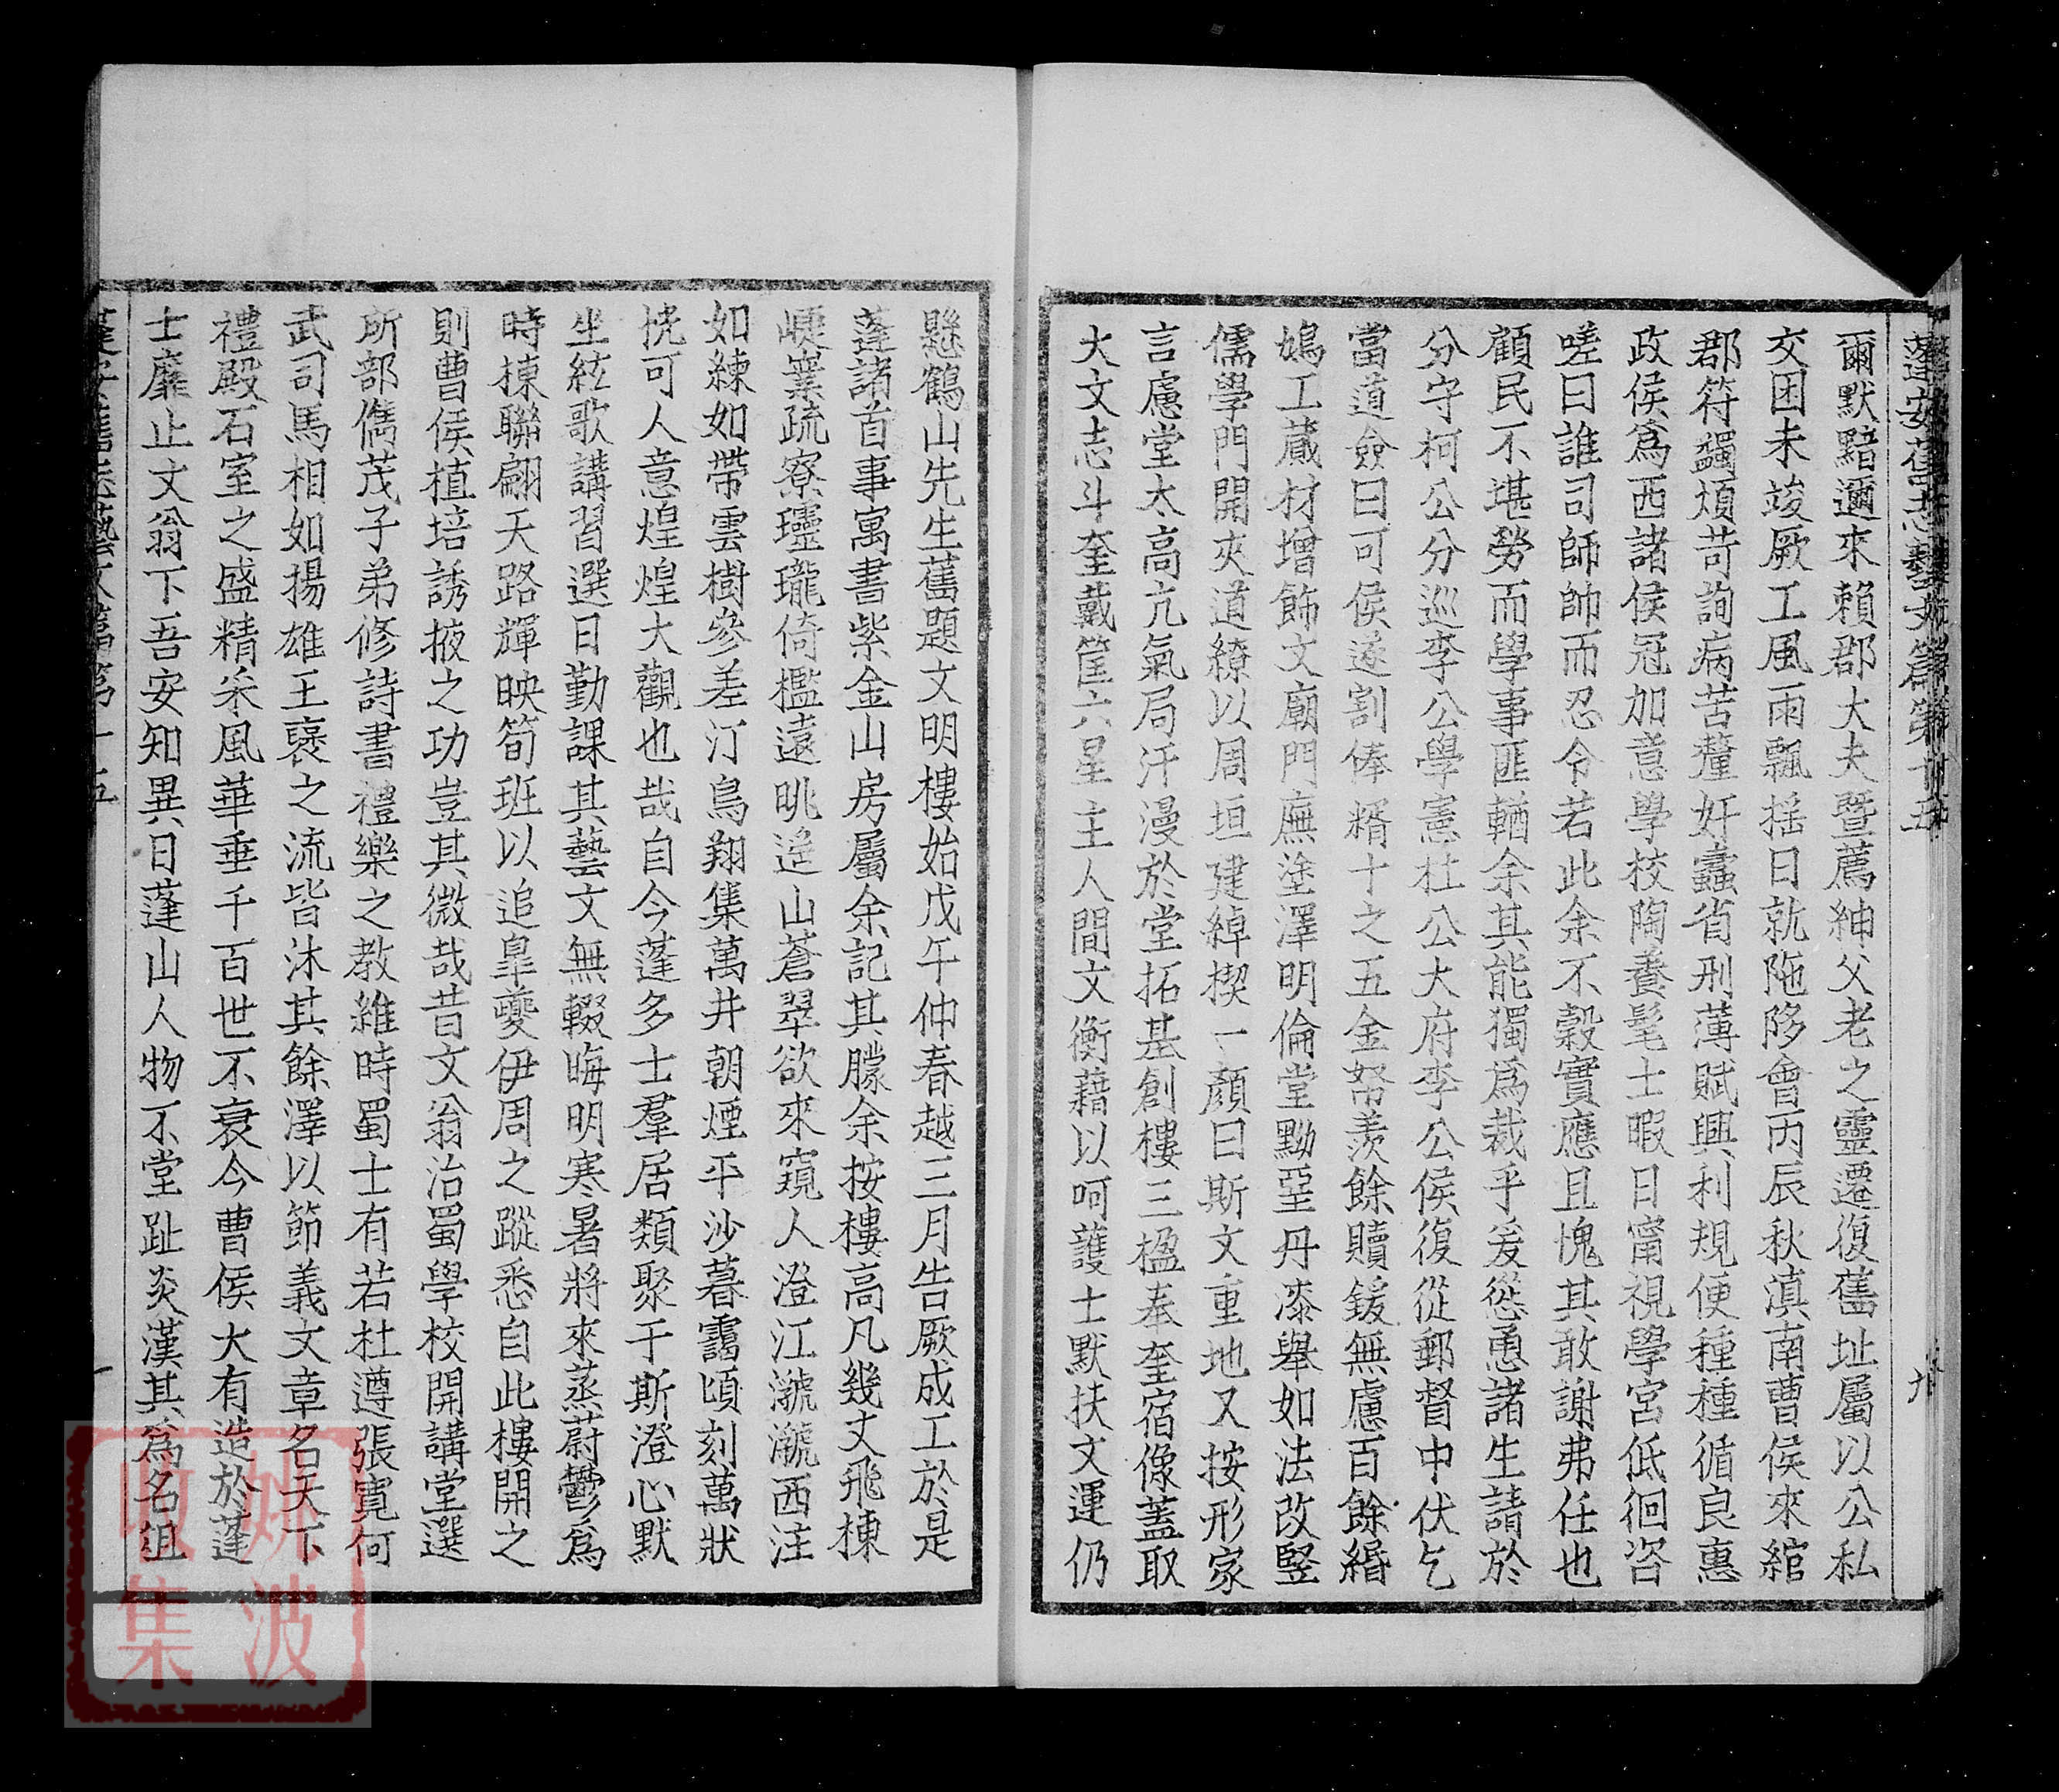 蓬安舊志藝文篇第十五
九
爾默黯邇來賴郡大夫暨薦紳父老之靈遷復舊址屬以公私
交困未竣厥工風雨飄揺日就陁陊會丙辰秋滇南曹侯來綰
郡符蠲煩苛詢病苦釐奸蠹省刑薄賦興利規便種種循良惠
政侯爲西諸侯冠加意學校陶養髦士暇日甯視學宮低徊咨
嗟曰誰司師帥而忍令若此余不穀實應且愧其敢謝弗任也
顧民不堪勞而學事匪輶余其能獨爲裁乎爰慫恿諸生請於
分守柯公分巡李公學憲杜公大府李公侯復從郵督中伏乞
當道僉曰可侯遂割俸糈十之五金帑羨餘贖鍰無慮百餘緡
鳩工蕆材增飾文廟門廡塗澤明倫堂黝堊丹漆舉如法改竪
儒學門開夾道繚以周垣建綽楔一顔曰斯文重地又按形家
言慮堂太高亢氣局汗漫於堂拓基創樓三楹奉奎宿像蓋取
大文志斗奎戴筐六星主人間文衡藉以呵護士默扶文運仍
懸鶴山先生舊題文明樓始戊午仲春越三月告厥成工於是
蓬諸首事寓書紫金山房屬余記其朦余按樓高凡幾丈飛棟
崨窠疏寮瓏瓏倚檻遠眺遥山蒼翠欲來窺人澄江瀠瀠西注
如練如帶雲樹參差汀鳥翔集萬井朝煙平沙暮靄頃刻萬狀
恍可人意煌煌大觀也哉自今蓬多士羣居類聚于斯澄心默
坐絃歌講習選日勤課其藝文無輟晦明寒暑將來蒸蔚鬱爲
時棟聯翩天路輝映筍班以追皐夔伊周之蹤悉自此樓開之
則曹侯植培誘掖之功豈其微哉昔文翁治蜀學校開講堂選
所部儁茂子弟修詩書禮樂之教維時蜀士有若杜遵張寬何
武司馬相如揚雄王襃之流皆沐其餘澤以節義文章名天下
禮殿石室之盛精采風華垂千百世不衰今曹侯大有造於蓬
士靡止文翁下吾安知異日蓬山人物不堂趾炎漢其爲名俎
蓬安舊志藝文篇第十五
姚波
收集